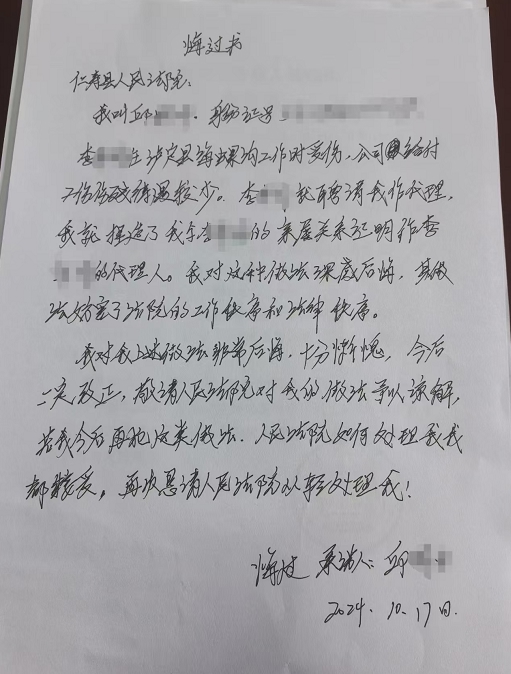 悔过书
仁寿县人民法院：
我叫邱，身份证号
李在泸定县海螺沟工作时受伤，公司给付
工伤伤残待遇较少。李就聘请我作代理，
我就捏造了我与李的亲属关系证明作李
的代理人。我对这种做法深感后悔，其做
法妨害了法院的工作秩序和法律秩序。
我对我上述做法非常后悔，十分惭愧，今后
一定改正，敬请人民法院对我的做法予以谅解，
若我今后再犯这类做法，人民法院如何处理我我
都接受，再次恳请人民法院从轻处理我！
悔过 承诺人：邱
2024.10.17日